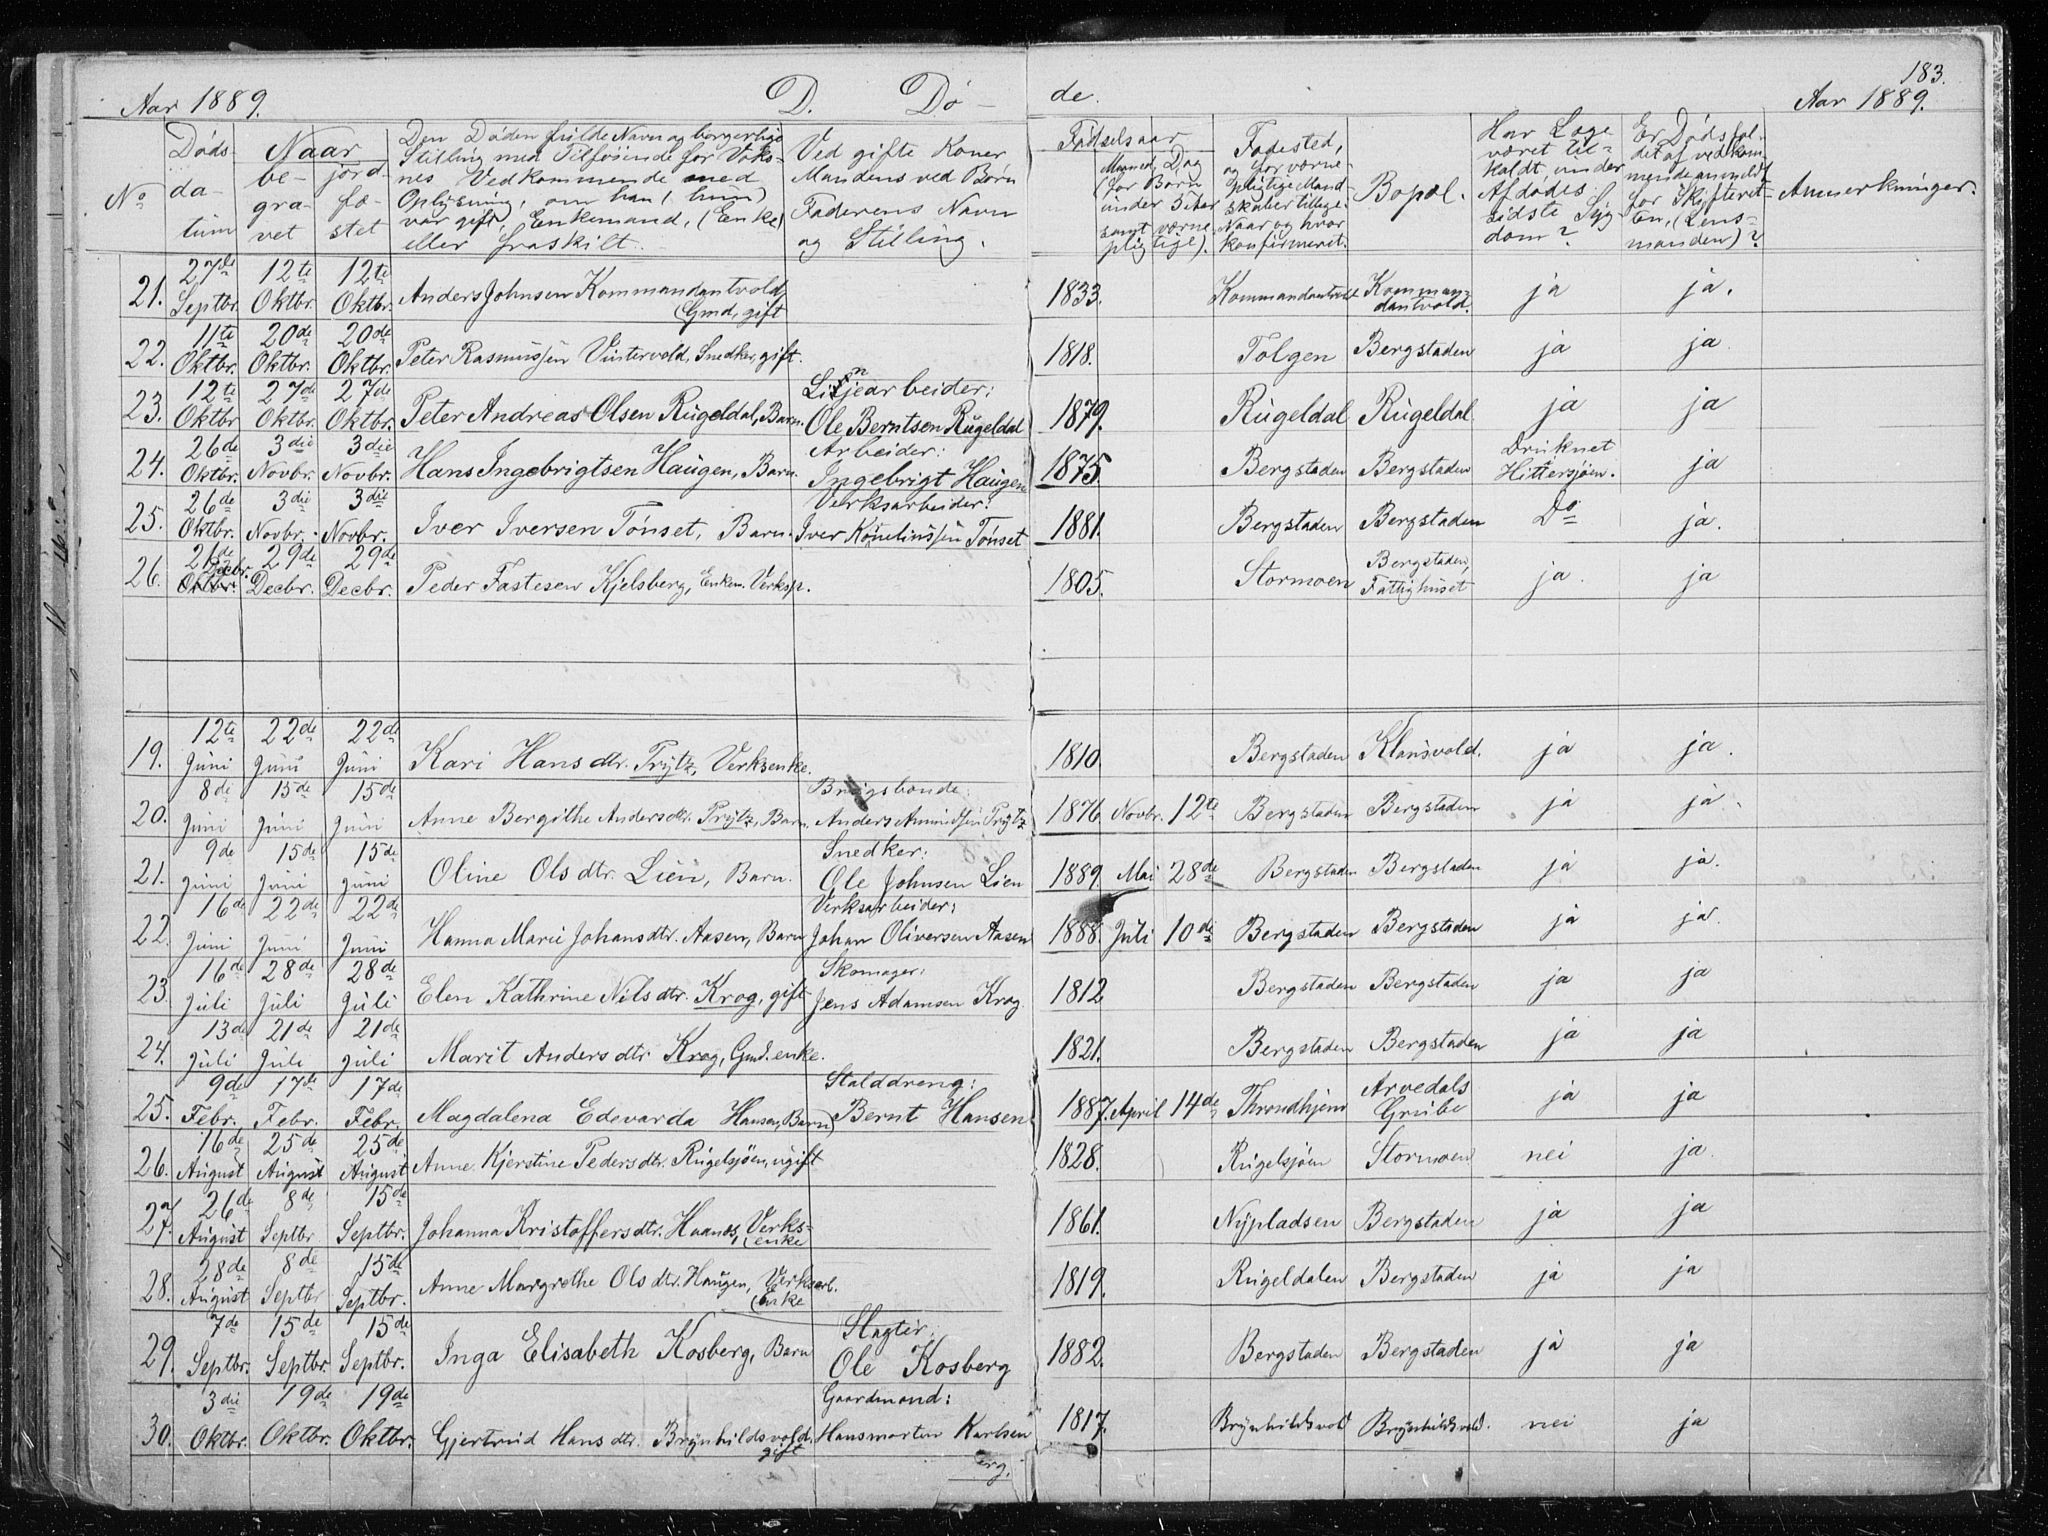 183.
Aar 1889. D. Dö-de. Aar 1889.
No
Döds-datum
Naar
be-gra-vet
jord-fæ-stet
Den Dödes fulde Navn og borgerlige
Stilling med Tilföiende for Voks-
nes Vedkommende med
Oplysning, om han (hun)
var gift, Enkemand, (Enke)
eller fraskilt.
Ved gifte Koner
Mandens ved Börn
Faderens Navn
og Stilling.
Födselsaar
Maaned, Dag
(for Börn
under 5 Aar
samt værne-
pligtige).
Födested,
og for værne-
pligtige Mand-
skaber tillige
Naar og hvor
konfirmeret.
Bopæl.
Har Læge
været til-
kaldt under
Afdödes
sidste Syg-
dom?
Er Dödsfal-
det af vedkom-
mende anmeldt
for Skifteret-
ten, (Lens-
manden)?
Anmerkninger.
21. 27de Septbr. 12te Oktbr. 12te Oktbr. Anders Johnsen Kommandantvold, Gmd, gift 1833. Kommandantvold Komman-dantvold. ja ja.
22. 11te Oktbr. 20de Oktbr. 20de Oktbr. Peter Rasmussen Vintervold, Snedker, gift. 1818. Tolgen Bergstaden ja ja.
23. 12te Oktbr 27de Oktbr. 27de Oktbr. Peter Andreas Olsen Rugeldal, Barn. Linjearbeider: Ole Berntsen Rugeldal 1879. Rugeldal Rugeldal. ja ja
24. 26de Oktbr. 3die Novbr. 3die Novbr. Hans Ingebrigtsen Haugen, Barn. Arbeider: Ingebrigt Haugen 1875. Bergstaden Bergstaden Druknet Hittersjöen. ja
25. 26de Oktbr. 3die Novbr. 3die Novbr. Iver Iversen Tönset, Barn. Verksarbeider: Iver Kornelinssen Tönset 1881. Bergstaden Bergstaden Do ja.
26. 21de Oktbr. Decbr. 29de Decbr. 29de Decbr. Peder Fastesen Kjelsberg, Enkem. Verksp. 1805. Stormoen Bergstaden, Fattighuset ja. ja
19. 12te Juni 22de Juni 22de Juni Kari Hansdtr. Prytz, Verksenke. 1810. Bergstaden Klausvold. ja ja.
20. 8de Juni 15de Juni 15de Juni Anne Bergithe Andersdtr. Prytz, Barn. Brugsbonde: Anders Amundsen Prytz 1876 Novbr. 12te Bergstaden Bergstaden ja ja.
21. 9de Juni 15de Juni 15de Juni Oline Olsdtr. Lien, Barn. Snedker: Ole Johnsen Lien 1889. Mai 28de Bergstaden Bergstaden ja ja.
22. 16de Juni 22de Juni 22de Juni Hanna Marie Johansdtr. Aasen, Barn Verksarbeider: Johan Oliversen Aasen 1888. Juli 10de Bergstaden Bergstaden ja ja.
23. 16de Juli 28de Juli 28de Juli Elen Kathrine Nilsdtr. Krog, gift Skomager: Jens Adamsen Krog. 1812 Bergstaden Bergstaden ja ja
24. 13de Juli 21de Juli 21de Juli Marit Andersdtr Krog, Gmd.enke. 1821. Bergstaden Bergstaden ja ja
25. 9de Febr. 17de Febr. 17de Febr. Magdalena Edevarda Hansen, Barn Stalddreng: Bernt Hansen. 1887. April 14de Throndhjem Arvedals Grube ja ja
26. 16de August 25de August 25de August Anne Kjerstine Pedersdtr. Rugelsjöen, ugift 1828. Rugelsjöen Stormoen nei ja.
27. 26de August 8de Septbr 15de Septbr. Johanna Kristoffersdtr. Haanes, Verks-enke 1861. Nypladsen Bergstaden ja ja
28. 28de August 8de Septbr 15de Septbr. Anne Margrethe Olsdtr. Haugen, Verksarb. Enke 1819. Rugeldalen Bergstaden ja ja
29. 7de Septbr. 15de Septbr. 15de Septbr. Inga Elisabeth Kosberg, Barn Slagter. Ole Kosberg 1882. Bergstaden Bergstaden ja ja
30. 3die Oktbr. 19de Oktbr. 19de Oktbr. Gjertrud Hansdtr. Brynhildsvold. gift Gaardmand: Hansmorten Karlsen 1817. Brynhildsvold Brynhildsvold. nei ja